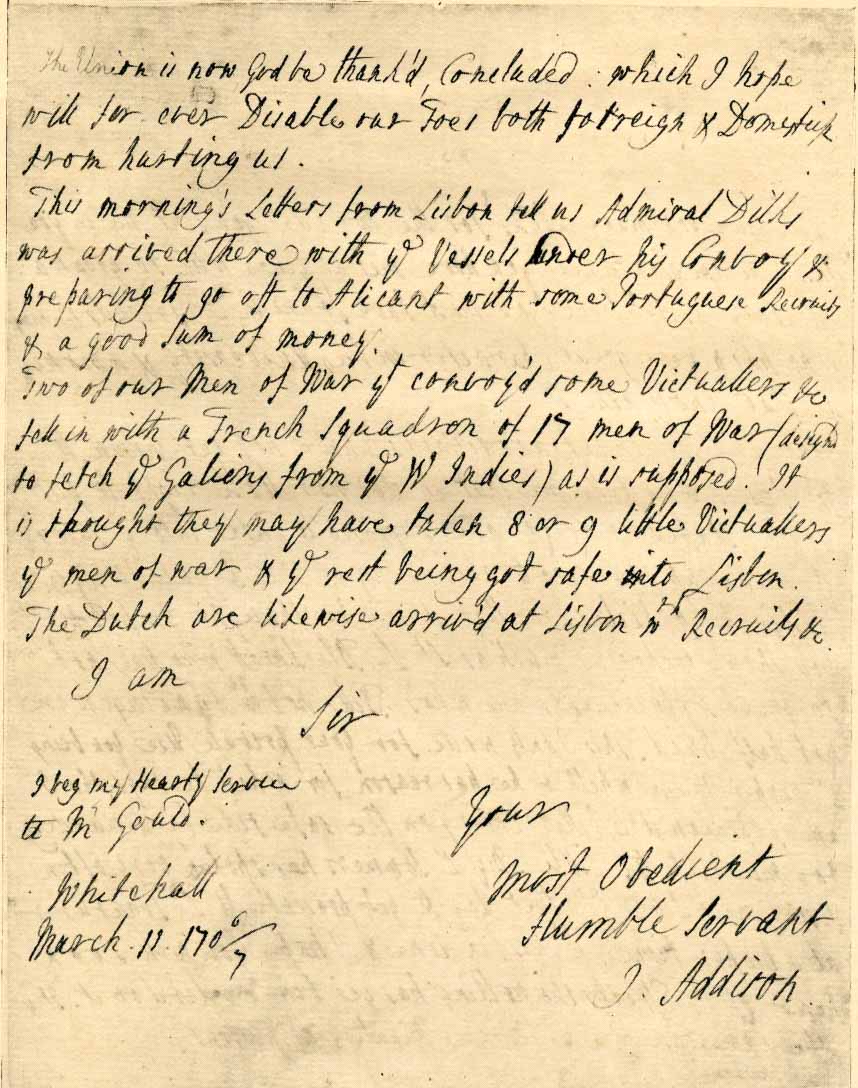 The Union is now God be thank'd, Concluded : which I hope
will for ever Disable our Foes both forreign & Domestick
from hurting us.
This morning's Letters from Lisbon tell us Admiral Dilks
was arrived there with yᵉ Vessels under his Convoy &
preparing to go off to Alicant with some Portuguese Recruits
& a good Sum of money.
Two of our Men of War yᵗ convoy'd some Victuallers &c
fell in with a French Squadron of 17 men of War (design'd
to fetch yᵉ Galions from yᵉ W Indies) as is supposed. It
is thought they may have taken 8 or 9 little Victuallers
yᵉ men of war & yᵉ rest being got safe into Lisbon.
The Dutch are likewise arriv'd at Lisbon wᵗʰ Recruits &c.
I am
Sir
I beg my Hearty Service
to Mʳ Gould.
Your
Most Obedient
Humble Servant
J. Addison.
Whitehall
March. 11 170⁶/₇